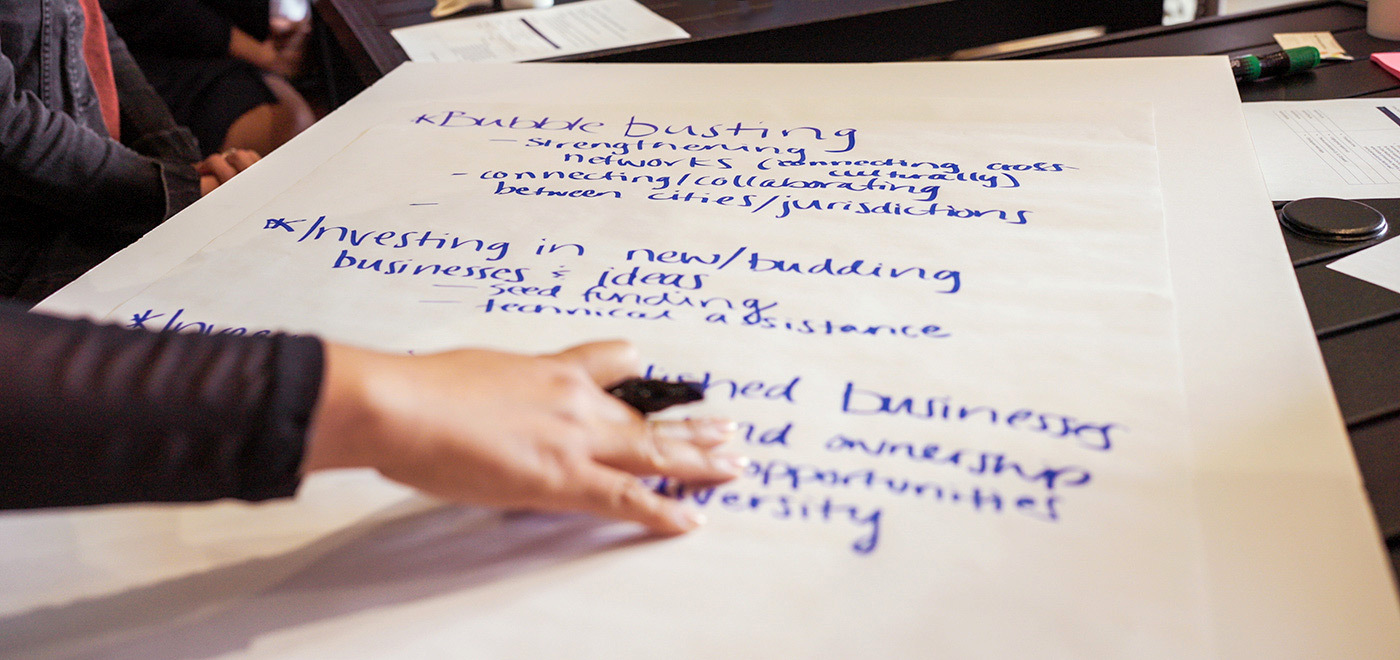 *Bubble busting
- strengthening
networks (connecting cross-
culturally)
- connecting/collaborating
between cities/jurisdictions
-
*Investing in new/budding
businesses & ideas
- seed funding
- technical assistance
*
businesses
ownership
opportunities
diversity